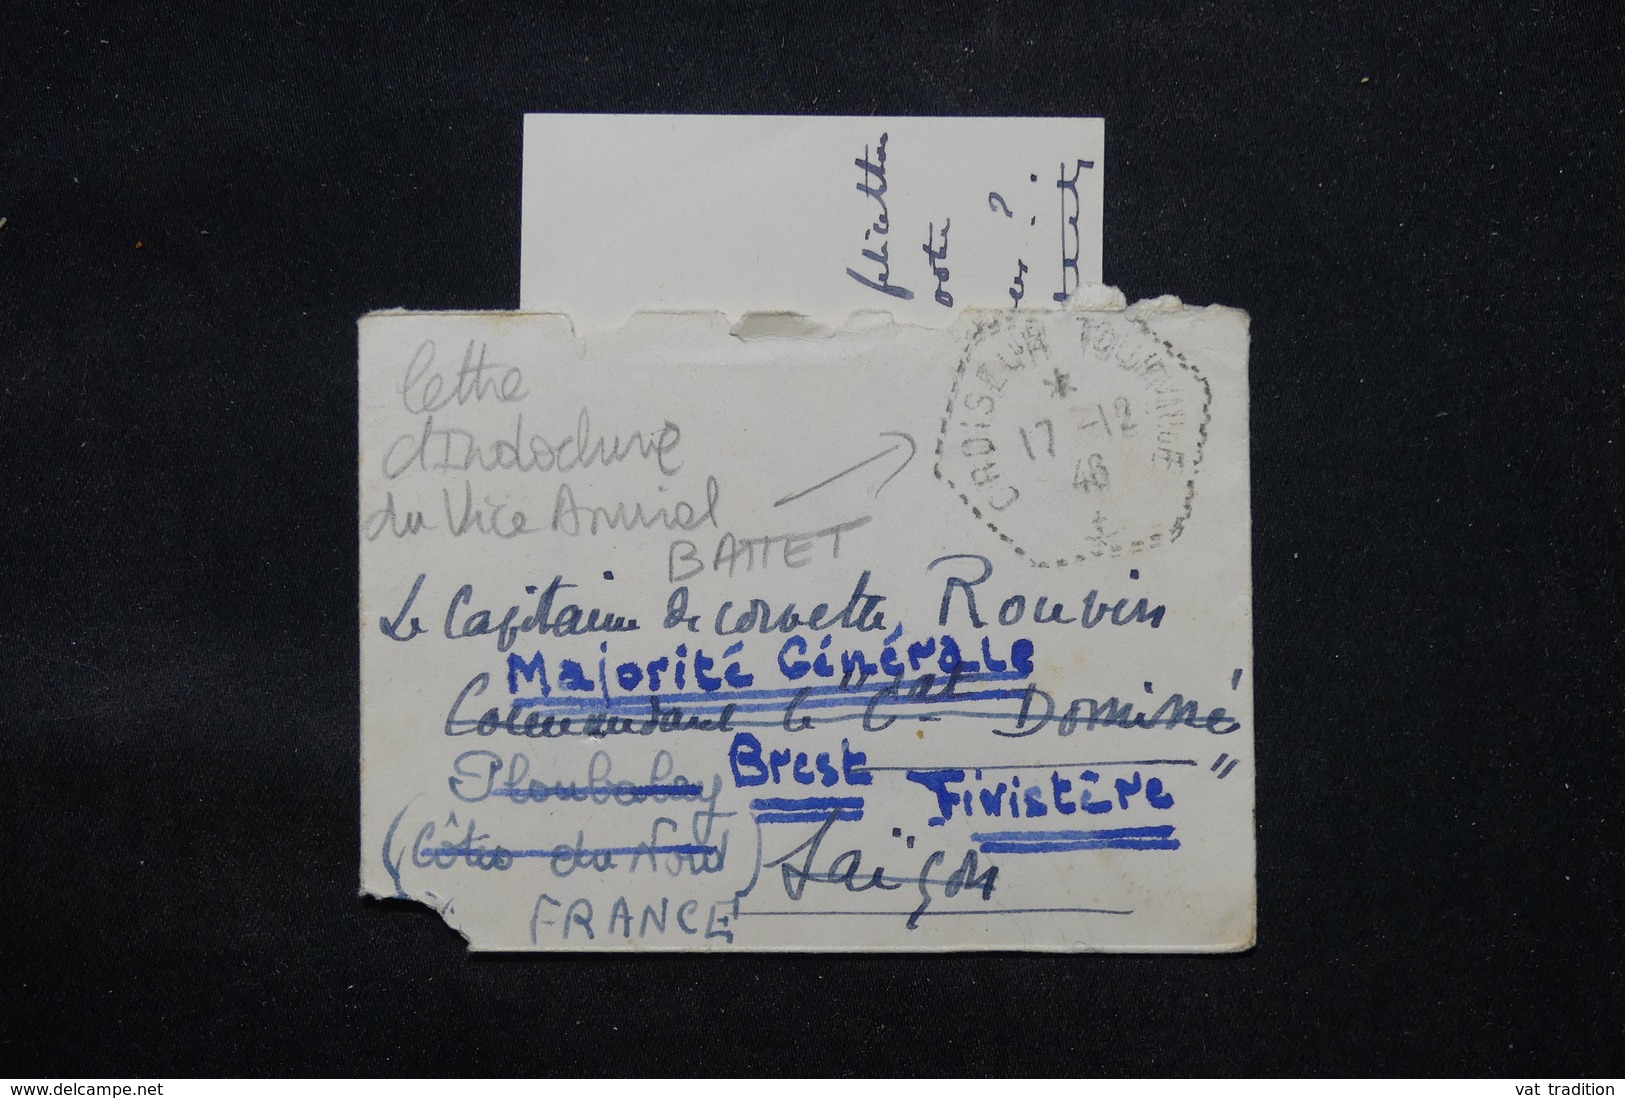 félicitations
votre
?
CROISEUR TOURVILLE
17 -12
46
lettre
d'Indochine
du Vice Amiral
BATTET
Le Capitaine de corvette Rouvin
Majorité Générale
Commandant le "Cat Dominé"
Ploubalay
Brest
Finistère
(Côtes du Nord)
Saïgon
FRANCE
delcampe.net
vat tradition